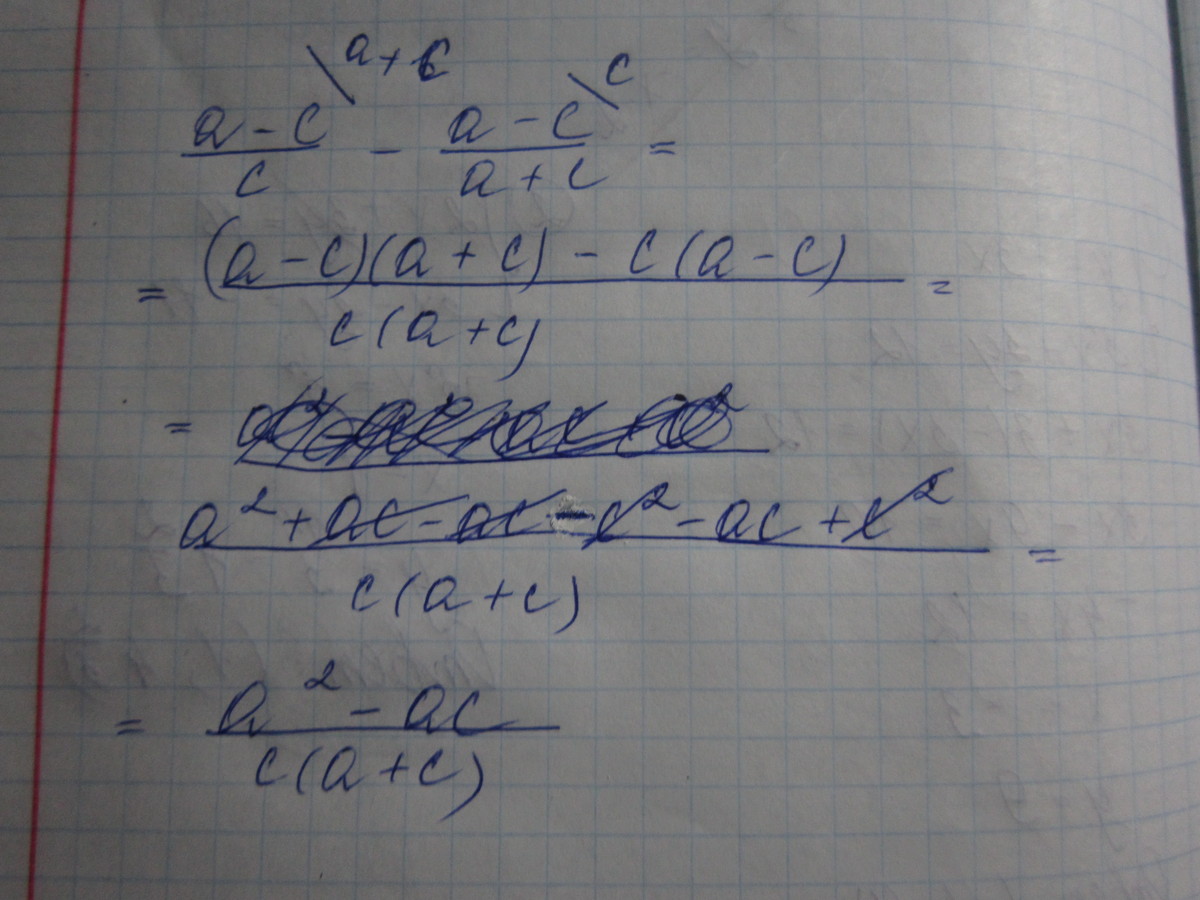 \a+c \c
(a-c)/c - (a-c)/(a+c) =
= ((a-c)(a+c) - c(a-c))/(c(a+c)) =
=
(a² + ac - ac - c² - ac + c²)/(c(a+c)) =
= (a² - ac)/(c(a+c))